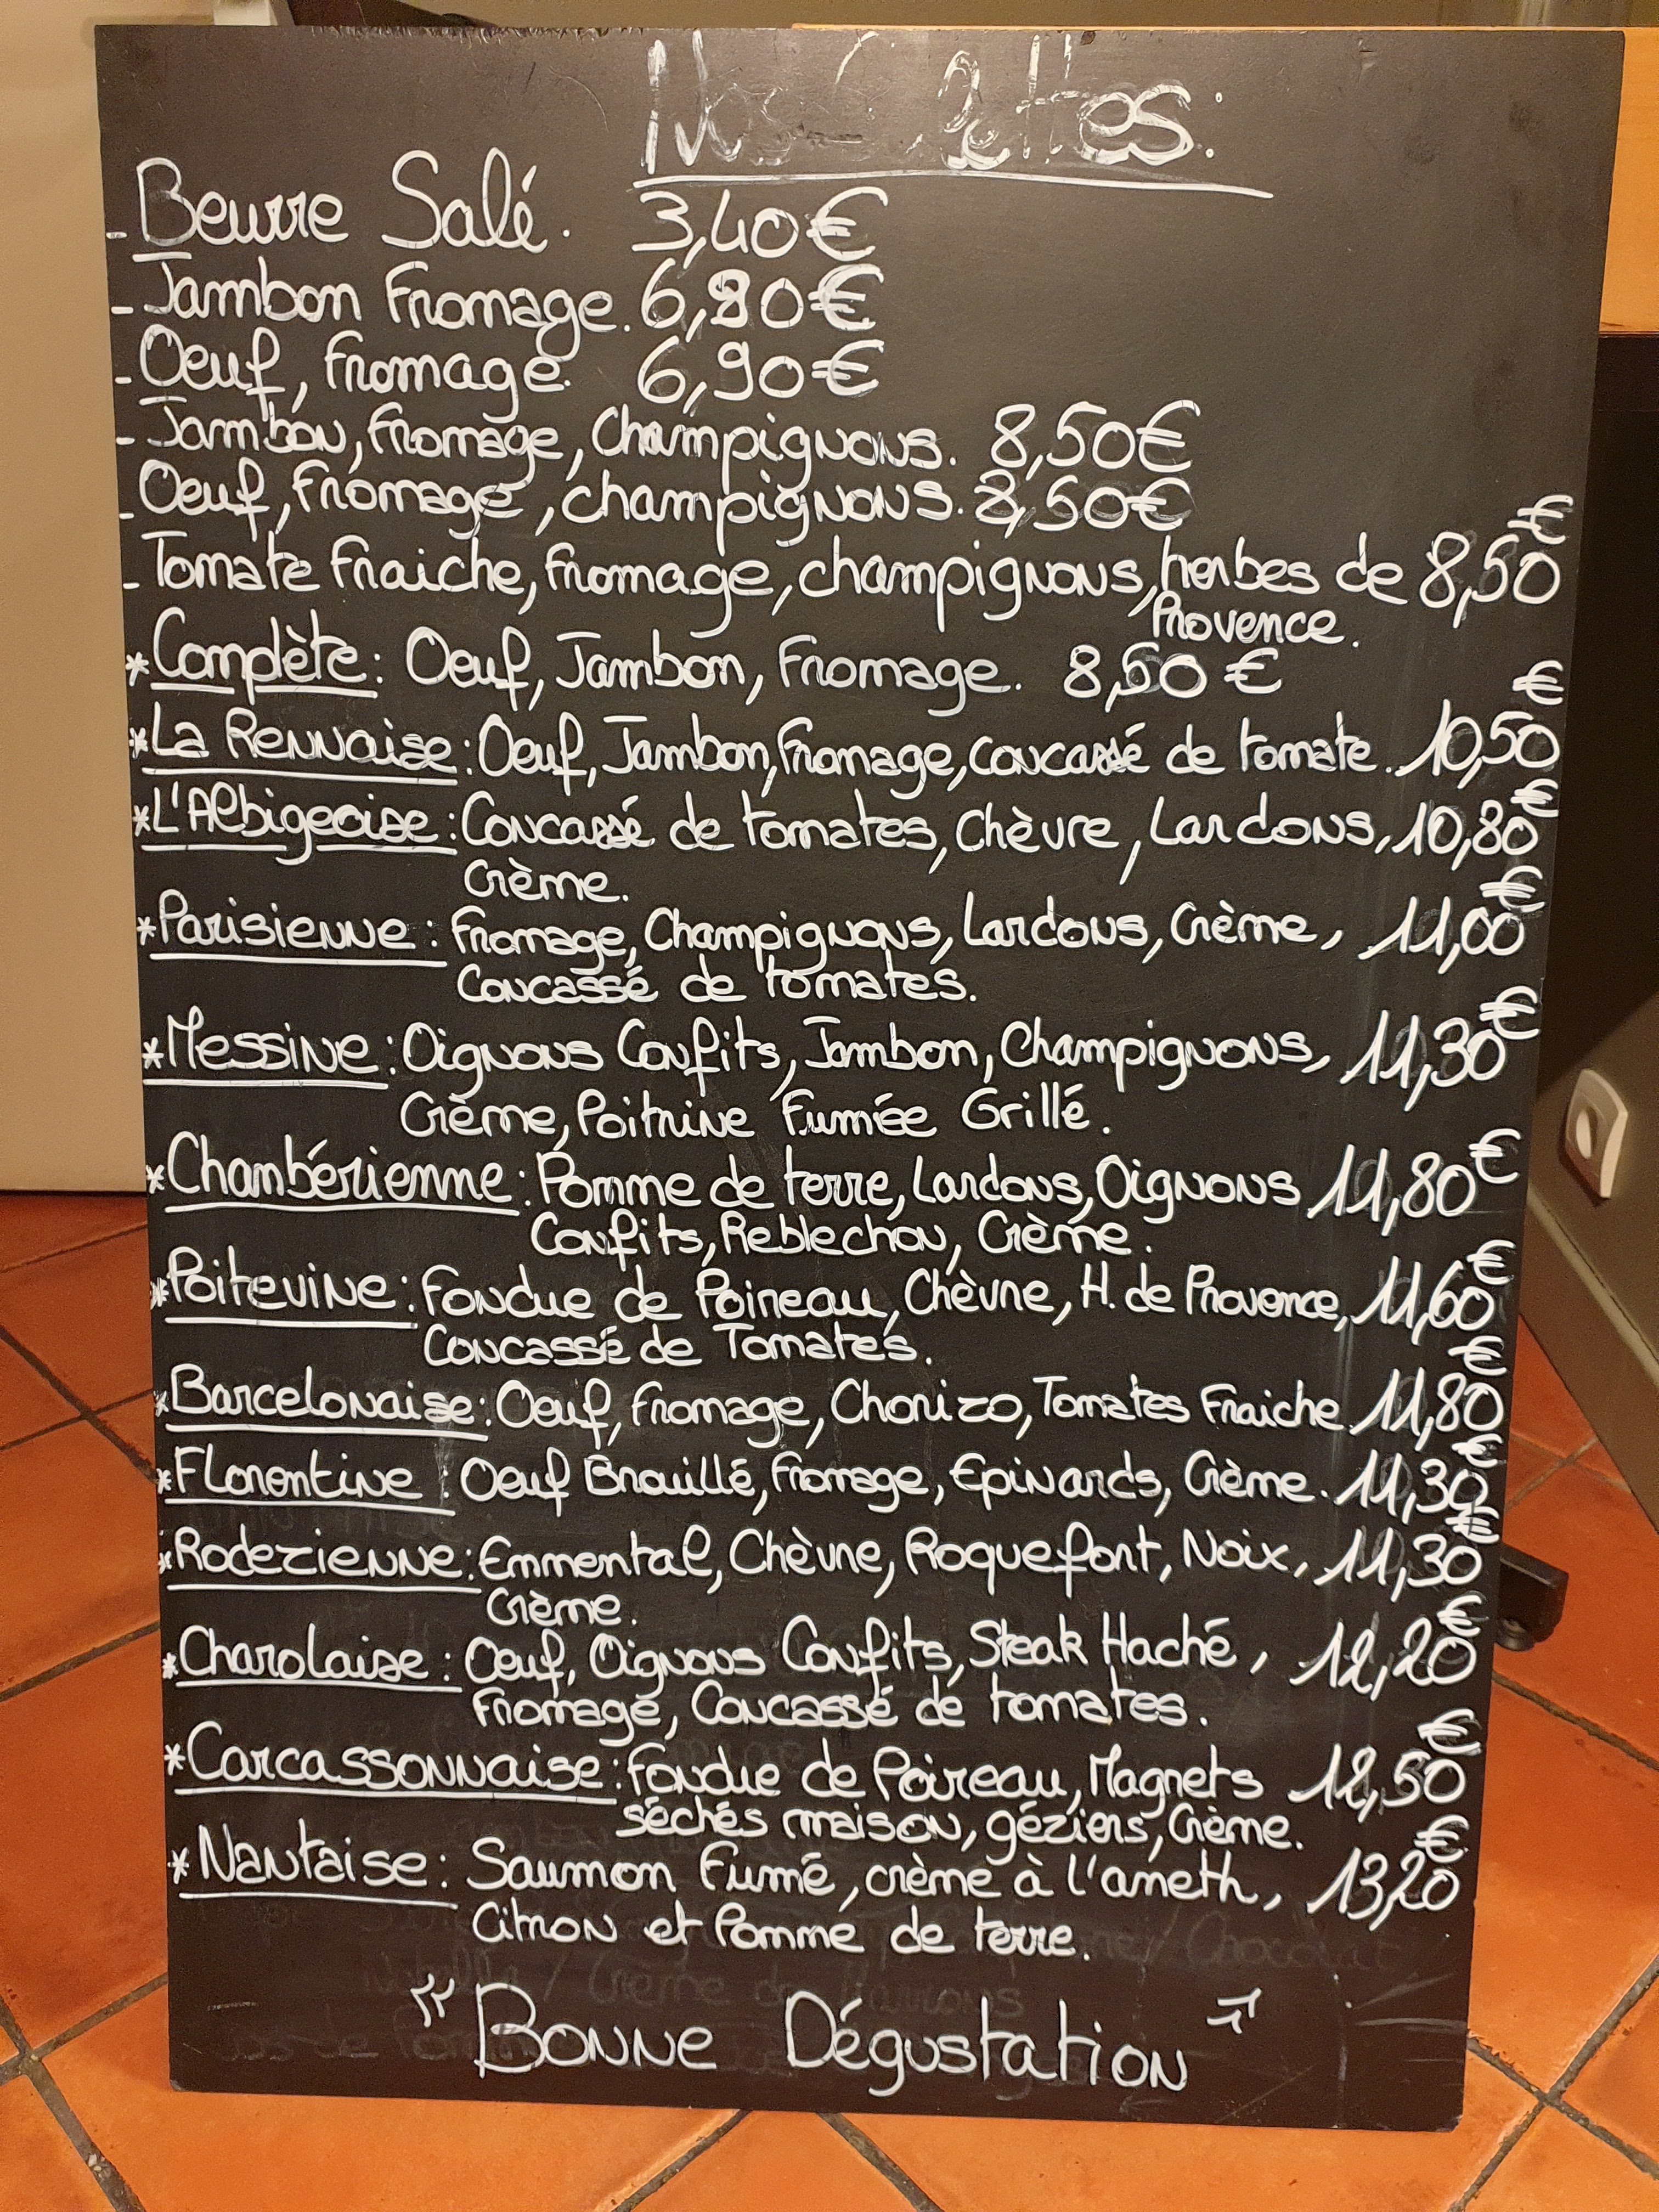 Nos Galettes:
- Beurre Salé. 3,40€
- Jambon Fromage. 6,90€
- Oeuf, Fromage. 6,90€
- Jambon, Fromage, Champignons. 8,50€
- Oeuf, Fromage, champignons. 8,50€
- Tomate Fraiche, fromage, champignons, herbes de 8,50€
Provence.
*Complète: Oeuf, Jambon, Fromage. 8,50€
*La Rennaise: Oeuf, Jambon, Fromage, concassé de tomate. 10,50€
*L'Albigeoise: Concassé de tomates, Chèvre, Lardons, 10,80€
Crème.
*Parisienne: Fromage, Champignons, Lardons, Crème, 11,00€
Concassé de tomates.
*Messine: Oignons Confits, Jambon, Champignons, 11,30€
Crème, Poitrine Fumée Grillé.
*Chambérienne: Pomme de terre, Lardons, Oignons 11,80€
Confits, Reblechon, Crème.
*Poitevine: Fondue de Poireau, Chèvre, H. de Provence, 11,60€
Concassé de Tomates.
*Barcelonaise: Oeuf, Fromage, Chorizo, Tomates Fraiche 11,80€
*Florentine: Oeuf Brouillé, Fromage, Epinards, Crème. 11,30€
*Rodezienne: Emmental, Chèvre, Roquefort, Noix, 11,30€
Crème.
*Charolaise: Oeuf, Oignons Confits, Steak Haché, 12,20€
Fromage, Concassé de tomates.
*Carcassonnaise: Fondue de Poireau, Magrets 12,50€
séchés maison, géziers, Crème.
*Nantaise: Saumon Fumé, crème à l'aneth, 13,20€
Citron et Pomme de terre.
"Bonne Dégustation"